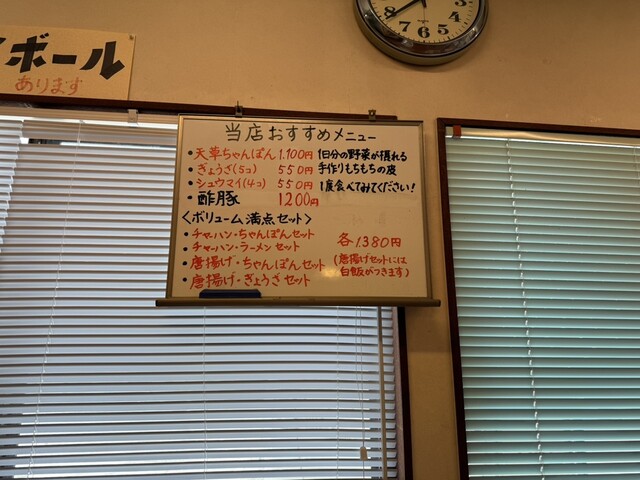 ボール
あります
7 6 5 4 3
当店おすすめメニュー
・天草ちゃんぽん 1.100円 1日分の野菜が摂れる
・ぎょうざ(5コ) 550円 手作りもちもちの皮
・シュウマイ(4コ) 550円 1度食べてみてください!
・酢豚 1200円
<ボリューム満点セット>
・チャーハン・ちゃんぽんセット
・チャーハン・ラーメンセット 各1.380円
・唐揚げ・ちゃんぽんセット (唐揚げセットには
・唐揚げ・ぎょうざセット 白飯がつきます)